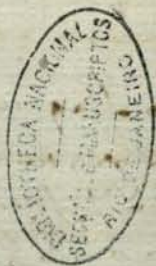 BIBLIOTHECA NACIONAL
SECÇÃO MANUSCRIPTOS
RIO DE JANEIRO